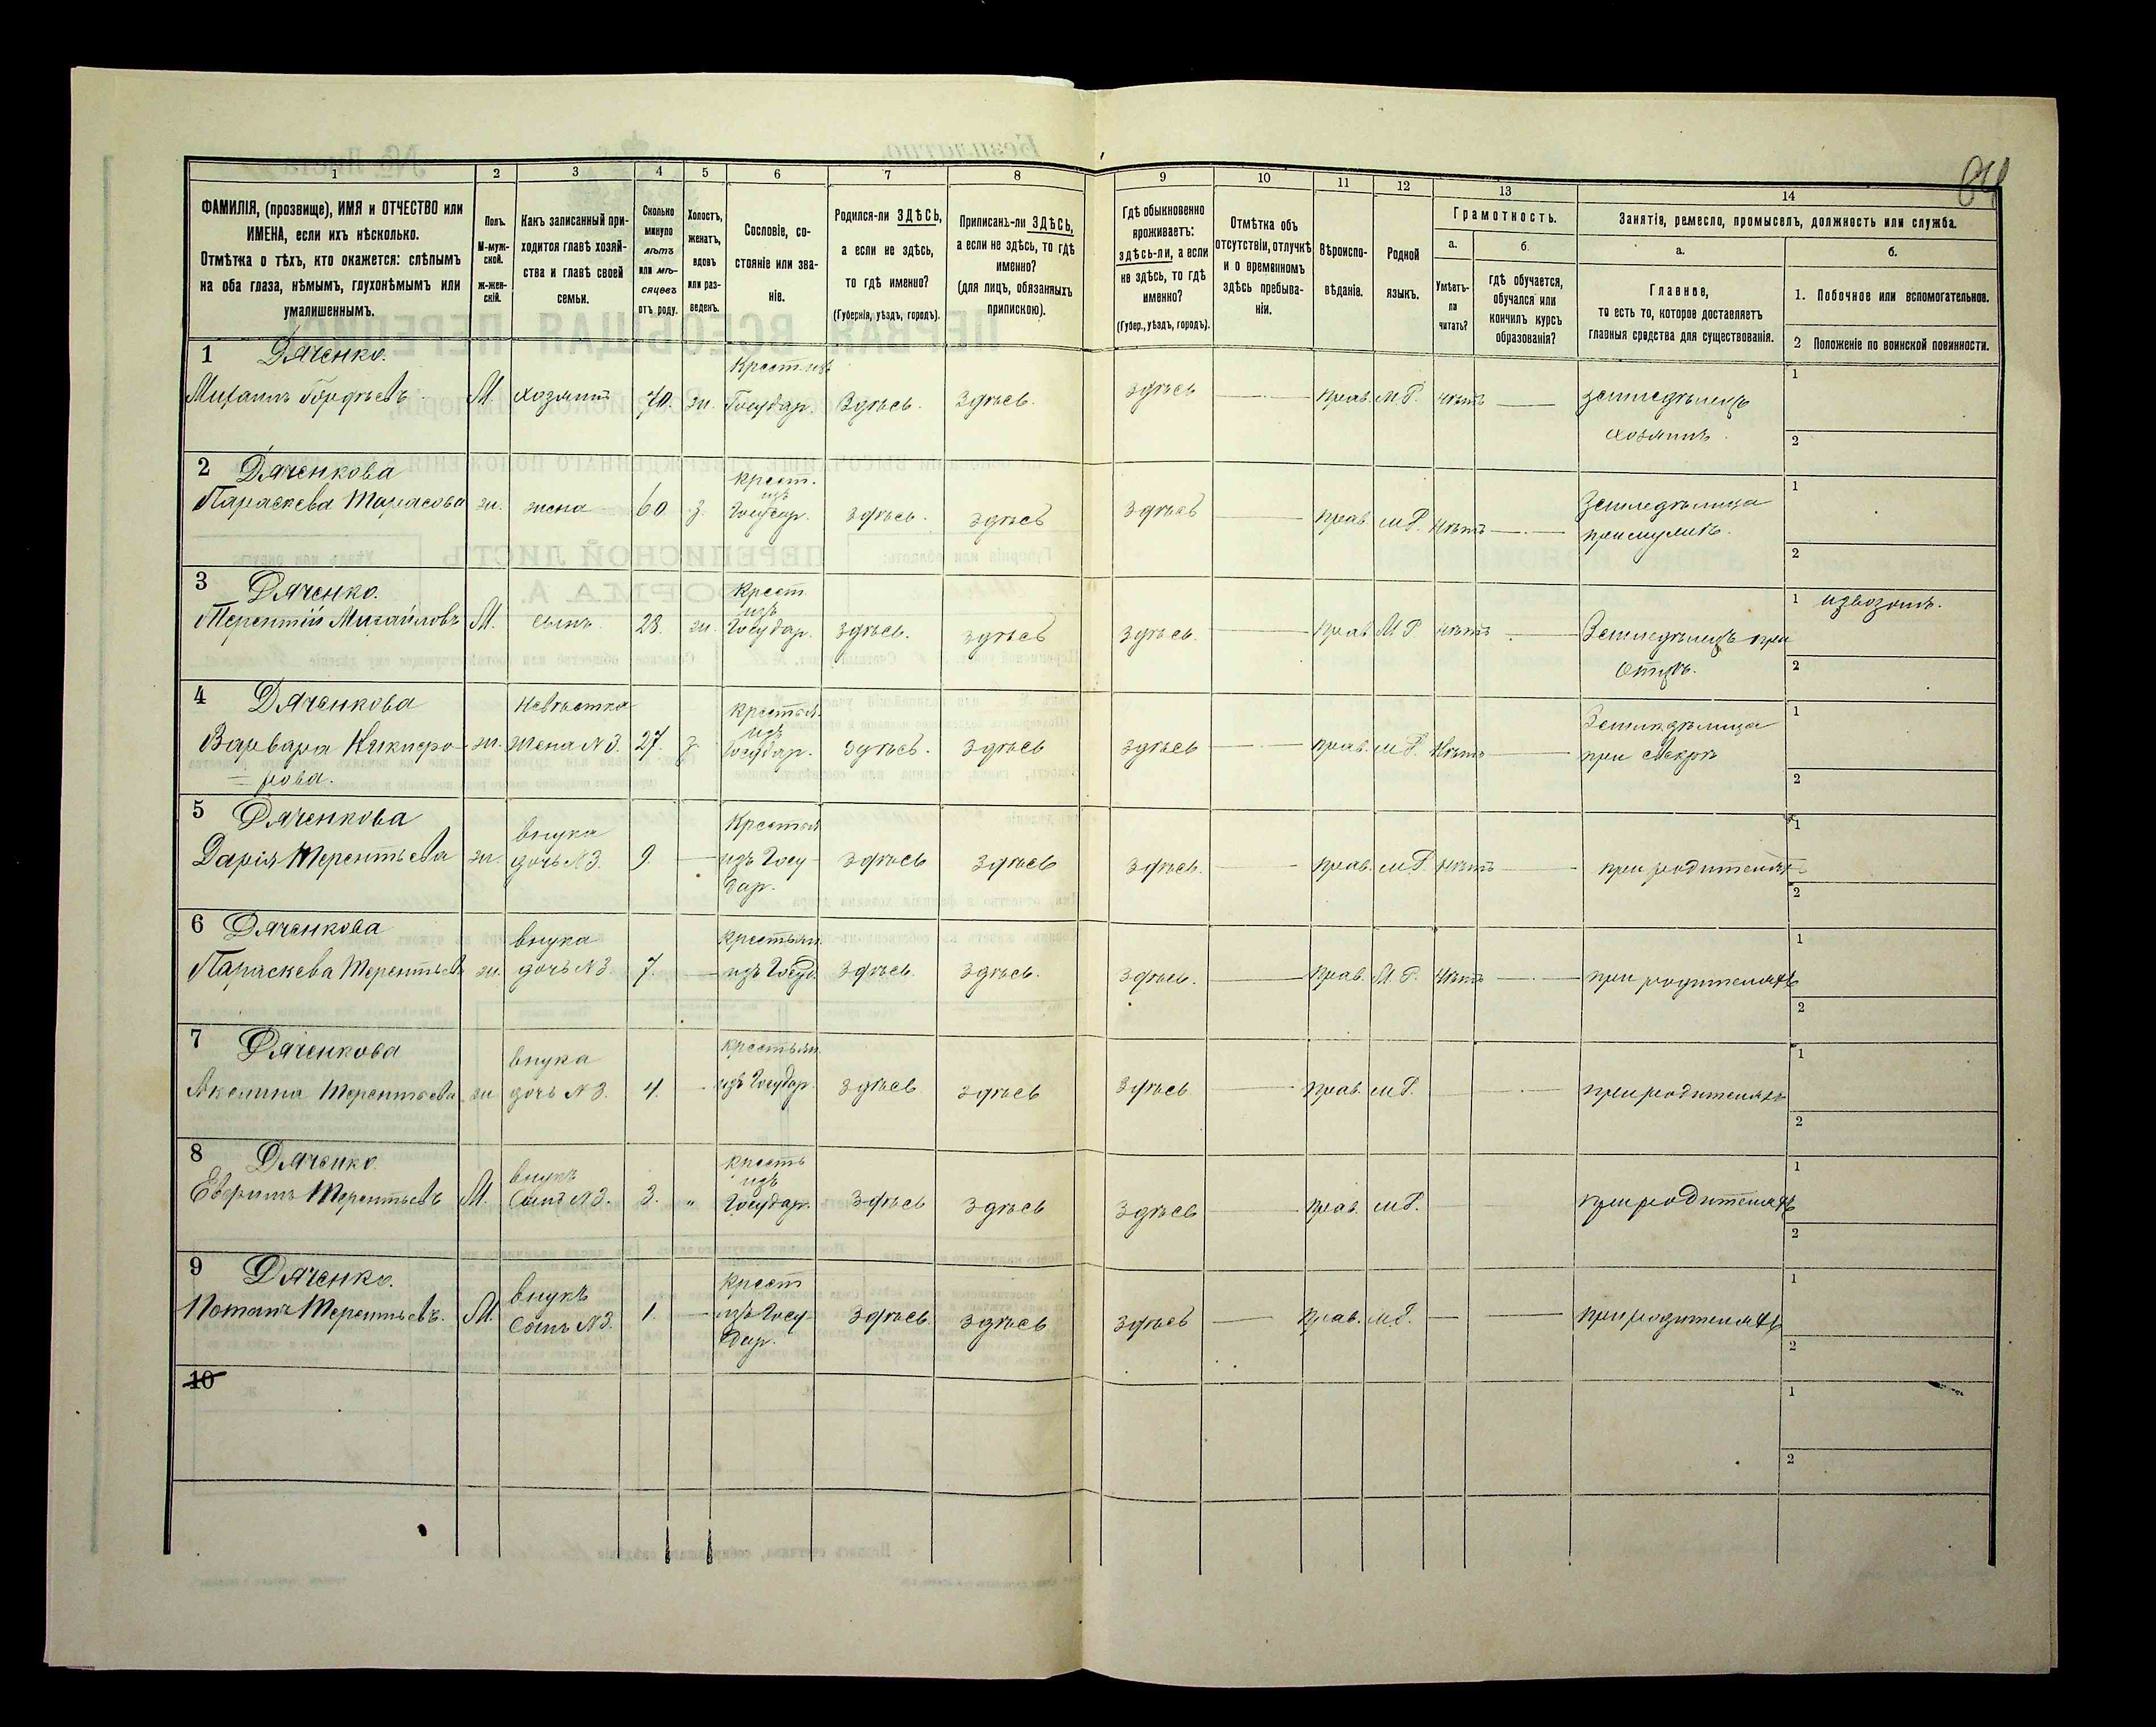 84
1 2 3 4 5 6 7 8 9 10 11 12 13 14
ФАМИЛІЯ, (прозвище), ИМЯ и ОТЧЕСТВО или
ИМЕНА, если ихъ нѣсколько.
Отмѣтка о тѣхъ, кто окажется: слѣпымъ
на оба глаза, нѣмымъ, глухонѣмымъ или
умалишеннымъ.
Полъ.
М-муж-
ской.
ж-жен-
скій.
Какъ записанный при-
ходится главѣ хозяй-
ства и главѣ своей
семьи.
Сколько
минуло
лѣтъ
или мѣ-
сяцевъ
отъ роду.
Холостъ,
женатъ,
вдовъ
или раз-
веденъ.
Сословіе, со-
стояніе или зва-
ніе.
Родился-ли ЗДѢСЬ,
а если не здѣсь,
то гдѣ именно?
(Губернія, уѣздъ, городъ).
Приписанъ-ли ЗДѢСЬ,
а если не здѣсь, то гдѣ
именно?
(для лицъ, обязанныхъ
припискою).
Гдѣ обыкновенно
проживаетъ:
здѣсь-ли, а если
не здѣсь, то гдѣ
именно?
(Губер., уѣздъ, городъ).
Отмѣтка объ
отсутствіи, отлучкѣ
и о временномъ
здѣсь пребыва-
ніи.
Вѣроиспо-
вѣданіе.
Родной
языкъ.
Грамотность.
а.
Умѣетъ-
ли
читать?
б.
гдѣ обучается,
обучался или
кончилъ курсъ
образованія?
Занятія, ремесло, промыселъ, должность или служба.
а.
Главное,
то есть то, которое доставляетъ
главныя средства для существованія.
б.
1. Побочное или вспомогательное.
2 Положеніе по воинской повинности.
1 Дяченко. Крест. изъ 1
Михаилъ Гордѣевъ. М. хозяинъ 70. ж. Государ. Здѣсь. Здѣсь. здѣсь — прав. М.Р. нѣтъ — земледѣлецъ
хозяинъ. 2
2 Дяченкова Крест. 1
изъ Земледѣлица
Параскева Тарасова ж. жена 60 з. Государ. здѣсь. здѣсь здѣсь — прав. М.Р. нѣтъ — при мужѣ. 2
3 Дяченко. Крест 1 извозомъ.
изъ
Терентій Михайловъ М. сынъ 28. ж. Государ. здѣсь. здѣсь здѣсь. — прав. М.Р. нѣтъ — Земледѣлецъ при
Отцѣ. 2
4 Дяченкова Невѣстка Крестья. 1
изъ Земледѣлица
Варвара Никифо- ж. жена N 3. 27. з. Государ. здѣсь. здѣсь здѣсь — прав. М.Р. Нѣтъ — при свекрѣ
рова. 2
5 Дяченкова внука Крестья 1
Дарія Терентьева ж. дочь N 3. 9. — изъ Госу- здѣсь здѣсь здѣсь. — прав. М.Р. нѣтъ — при родителяхъ
дар. 2
6 Дяченкова внука крестьян. 1
Параскева Терентьев ж. дочь N 3 7. — изъ Госуд. здѣсь. здѣсь. здѣсь. — прав. М.Р. нѣтъ — при родителяхъ
2
7 Дяченкова внука крестьян. 1
Акелина Терентьева ж дочь N 3. 4. — изъ Государ. здѣсь здѣсь здѣсь. — прав. М.Р. — при родителяхъ
2
8 Дяченко внукъ кресть 1
изъ
Ефримъ Терентьевъ М. Сынъ N 3. 3. „ Государ. здѣсь здѣсь здѣсь — прав. М.Р. — при родителяхъ
2
9 Дяченко. внукъ крест 1
Потапъ Терентьевъ. М. Сынъ N 3. 1. — изъ Госу- здѣсь. здѣсь здѣсь — прав. М.Р. — — при родителяхъ
дар. 2
10 1
2